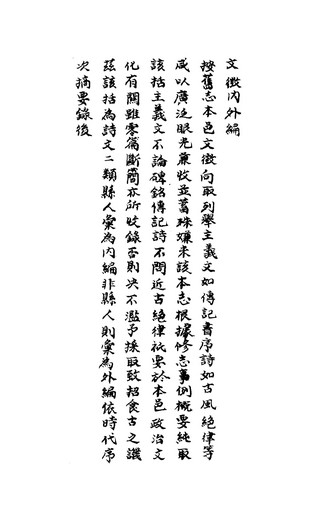 文徵內外編
按舊志本邑文徵向取列舉主義文如傳記書序詩如古風絕律等
咸以廣泛眼光兼收並蓄殊嫌未該本志根據修志事例概要純取
該括主義文不論碑銘傳記詩不問近古絕律祇要於本邑政治文
化有關雖零篇斷簡亦所收錄否則決不濫予採取致招食古之譏
茲該括為詩文二類縣人彙為內編非縣人則彙為外編依時代序
次摘要錄後